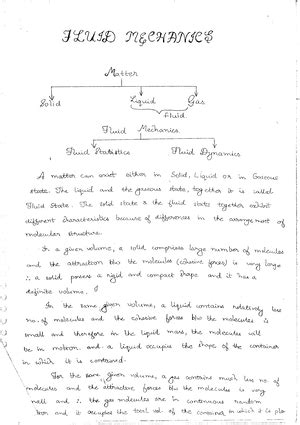 FLUID MECHANICS
Matter
Solid Liquid Gas
Fluid
Fluid Mechanics
Fluid Statistics Fluid Dynamics
A matter can exist either in Solid, Liquid or in Gaseous
state. The liquid and the gaseous state, together it is called
Fluid State. The solid state & the fluid state together exhibit
different characteristics because of differences in the arrangement of
molecular structure.
In a given volume, a solid comprises large number of molecules
and the attraction b/w the molecules (cohesive forces) is very large
∴ a solid posses a rigid and compact shape and it has a
definite volume.
In the same given volume, a liquid contains relatively less
no. of molecules and the cohesive forces b/w the molecules is
small and therefore in the liquid mass, the molecules will
be in motion and a liquid occupies the shape of the container
in which it is contained.
For the same given volume, a gas contains much less no of
molecules and the attractive forces b/w the molecules is very
small and ∴ the gas molecules are in continuous random
tion and it occupies the total vol. of the container in which it is pla